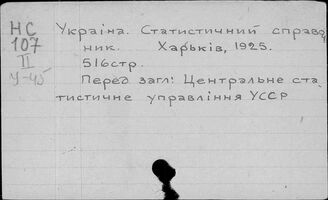 НС
107
II
У-45
Україна. Статистичний справоч
ник. Харьків, 1925.
516стр.
Перед загл: Центральне ста
тистичне управління УССР